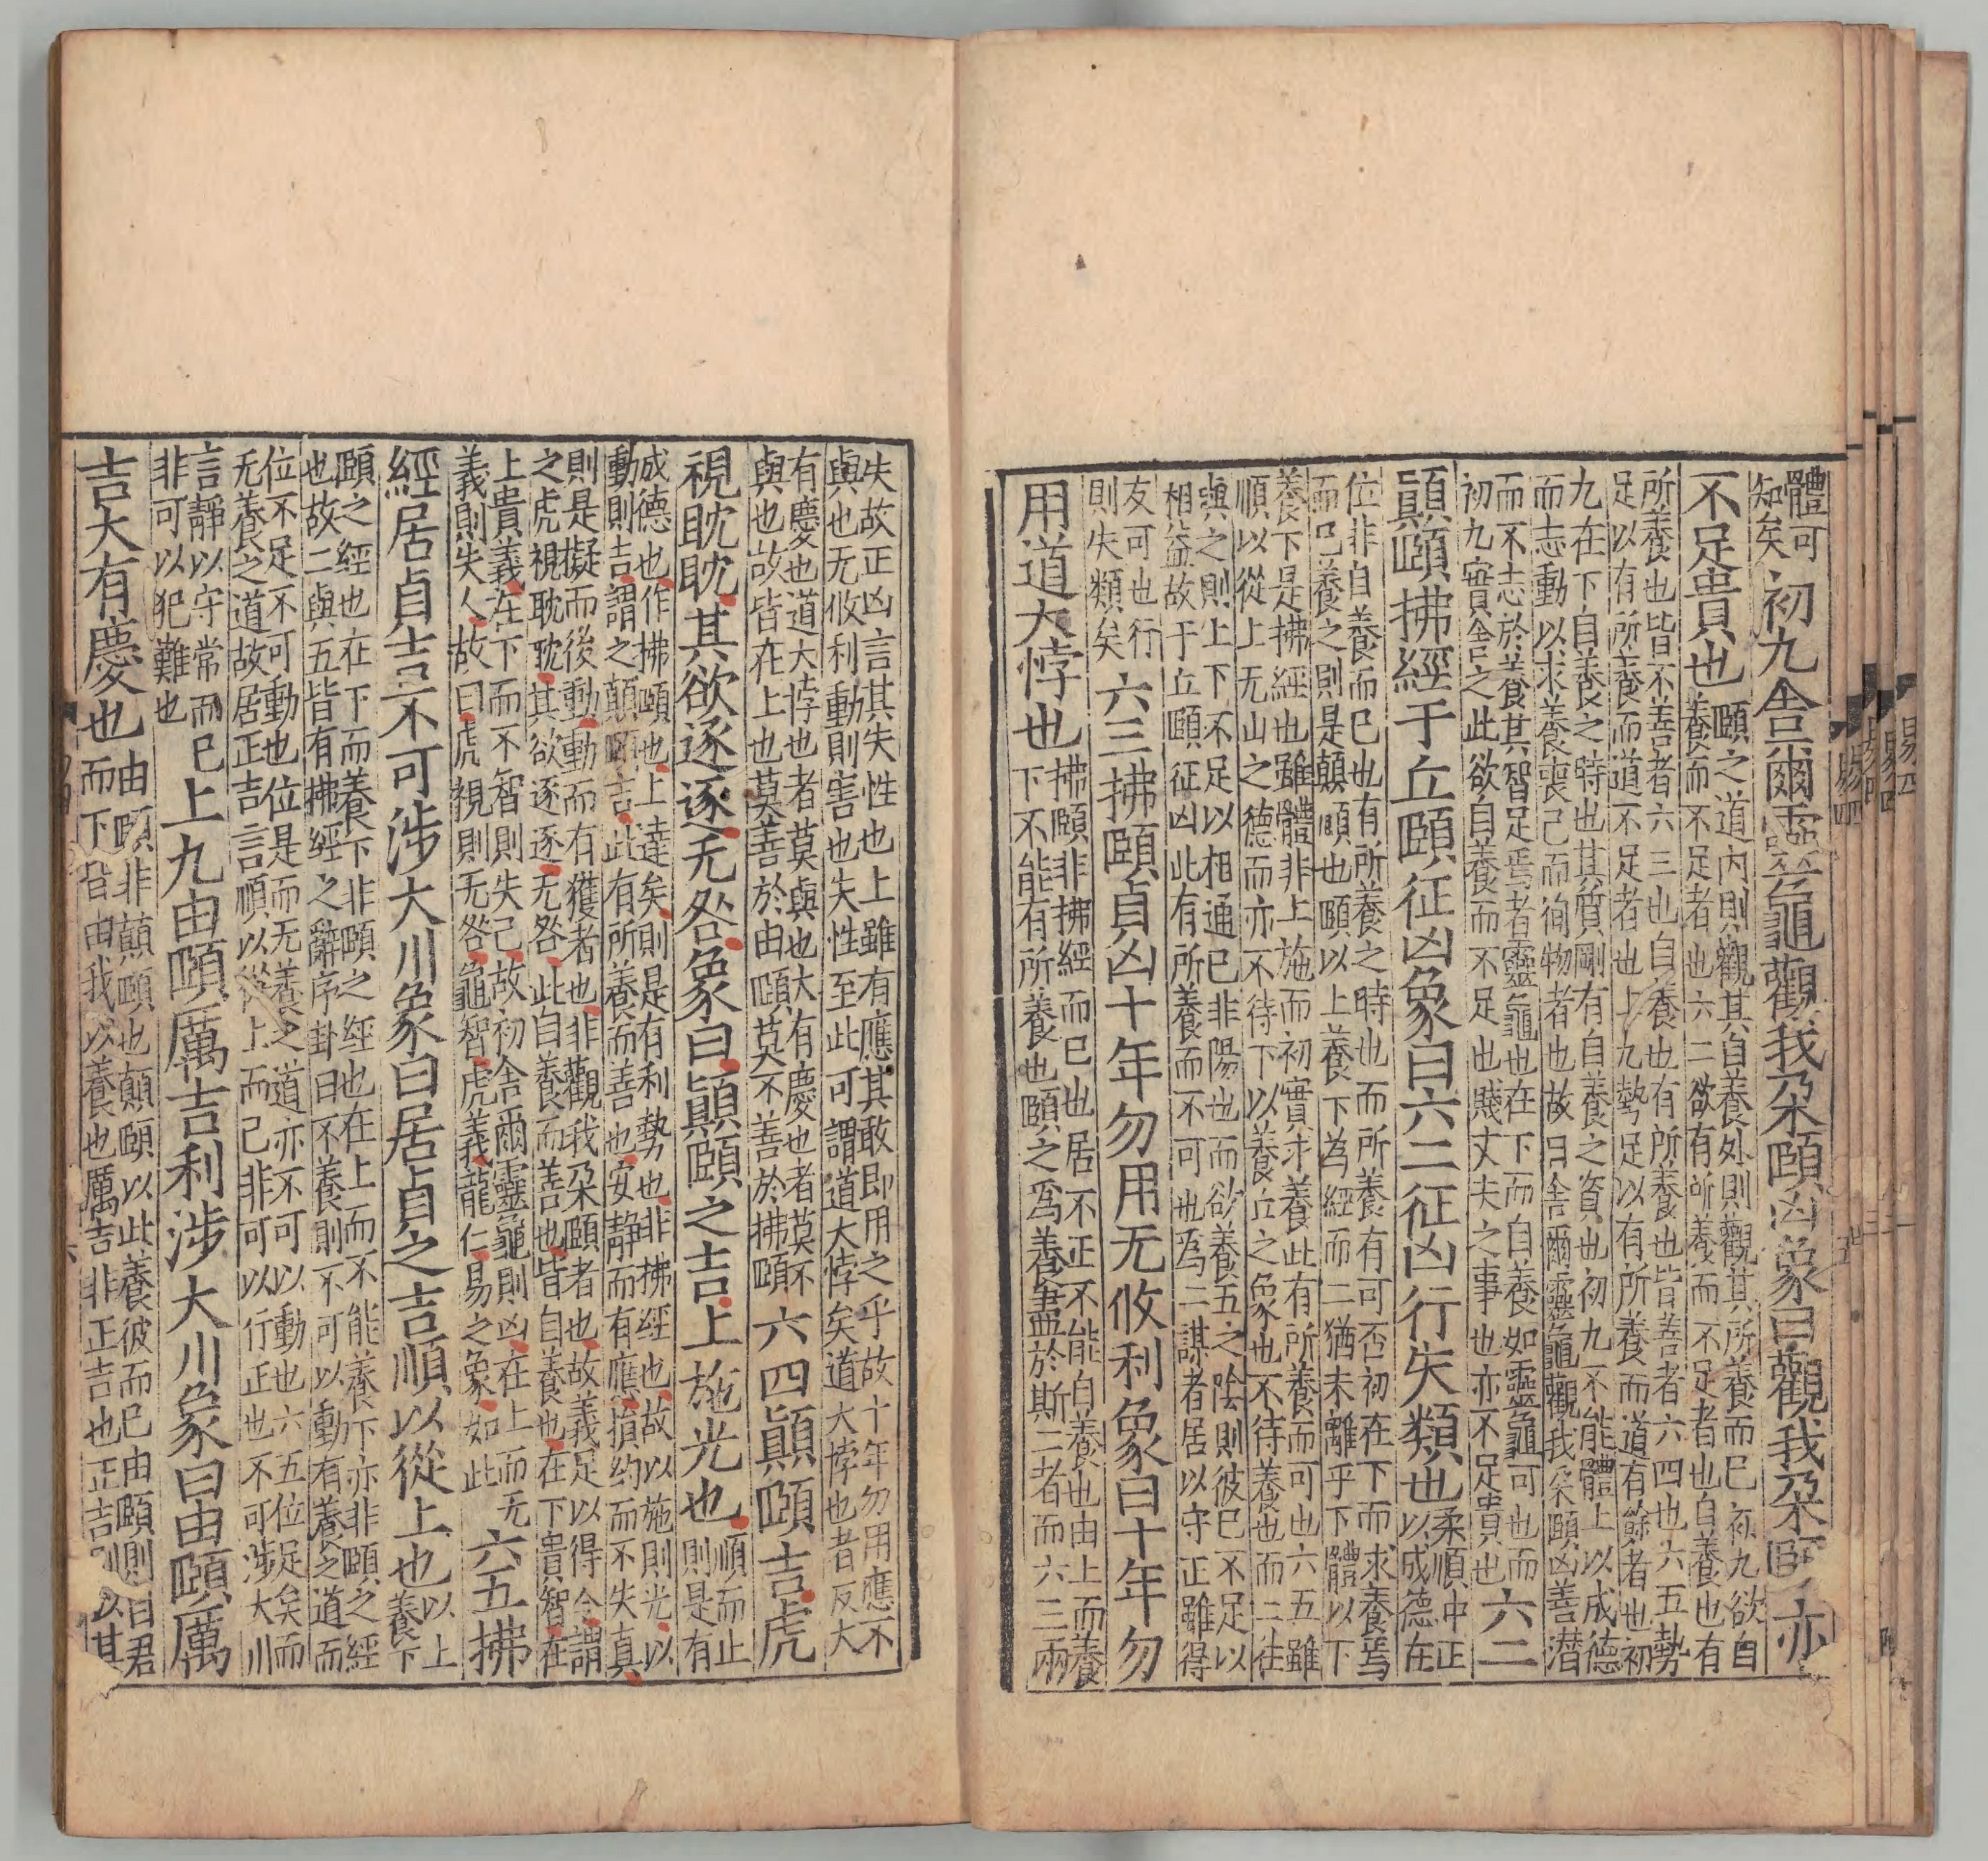 體可
知矣
初九舍爾靈龜觀我朶頤凶象曰觀我朶頤亦
不足貴也
頤之道內則觀其自養外則觀其所養而已初九欲自
養而不足者也六二欲有所養而不足者也自養也有
所養也皆不善者六三也自養也有所養也皆善者六四也六五勢
足以有所養而道不足者也上九勢足以有所養而道有餘者也初
九在下自養之時也其質剛有自養之資也初九不能體上以成德
而志動以求養喪己而徇物者也故曰舍爾靈龜觀我朶頤凶善潛
而不志於養其智足焉者靈龜也在下而自養如靈龜可也而
初九實舍之此欲自養而不足也賤丈夫之事也亦不足貴也
六二
顚頤拂經于丘頤征凶象曰六二征凶行失類也
柔順中正
以成德在
位非自養而已也有所養之時也而所養有可否初在下而求養焉
而已養之則是顛頤也頤以上養下為經而二猶未離乎下體以下
養下是拂經也雖體非上施而初實求養此有所養而可也六五雖
順以從上无山之德而亦不待下以養丘之象也不待養也而二往
與之則上下不足以相通已非陽也而欲養五之陰則彼已不足以
相益故于丘頤征凶此有所養而不可也爲二謀者居以守正雖得
友可也行
則失類矣
六三拂頤貞凶十年勿用无攸利象曰十年勿
用道大悖也
拂頤非拂經而已也居不正不能自養也由上而養
下不能有所養也頤之爲養盡於斯二者而六三兩
失故正凶言其失性也上雖有應其敢即用之乎故十年勿用應不
與也无攸利動則害也失性至此可謂道大悖矣道大悖也者反大
有慶也道大悖也者莫與也大有慶也者莫不
與也故皆在上也莫善於由頤莫不善於拂頤
六四顚頤吉虎
視眈眈其欲逐逐无咎象曰顚頤之吉上施光也
順而止
則是有
成德也作拂頤也上達矣則是有利勢也非拂經也故以施則光以
動則吉謂之顛頤吉此有所養而善也安靜而有應損約而不失真
則是擬而後動動而有獲者也非觀我朶頤者也故義足以得令謂
之虎視眈眈其欲逐逐无咎此自養而善也皆自養也在下貴智在
上貴義在下而不智則失己故初舍爾靈龜則凶在上而无
義則失人故曰虎視則无咎龜智虎義龍仁易之象如此
六五拂
經居貞吉不可涉大川象曰居貞之吉順以從上也
以上
養下
頤之經也在下而養下非頤之經也在上而不能養下亦非頤之經
也故二與五皆有拂經之辭序卦曰不養則不可以動有養之道而
位不足不可動也位是而无養之道亦不可以動也六五位足矣而
无養之道故居正吉言順以從上而已非可以行正也不可涉大川
言靜以守常而已
非可以犯難也
上九由頤厲吉利涉大川象曰由頤厲
吉大有慶也
由頤非顛頤也顛頤以此養彼而已由頤則自君
而下皆由我以養也厲吉非正吉也正吉順以其